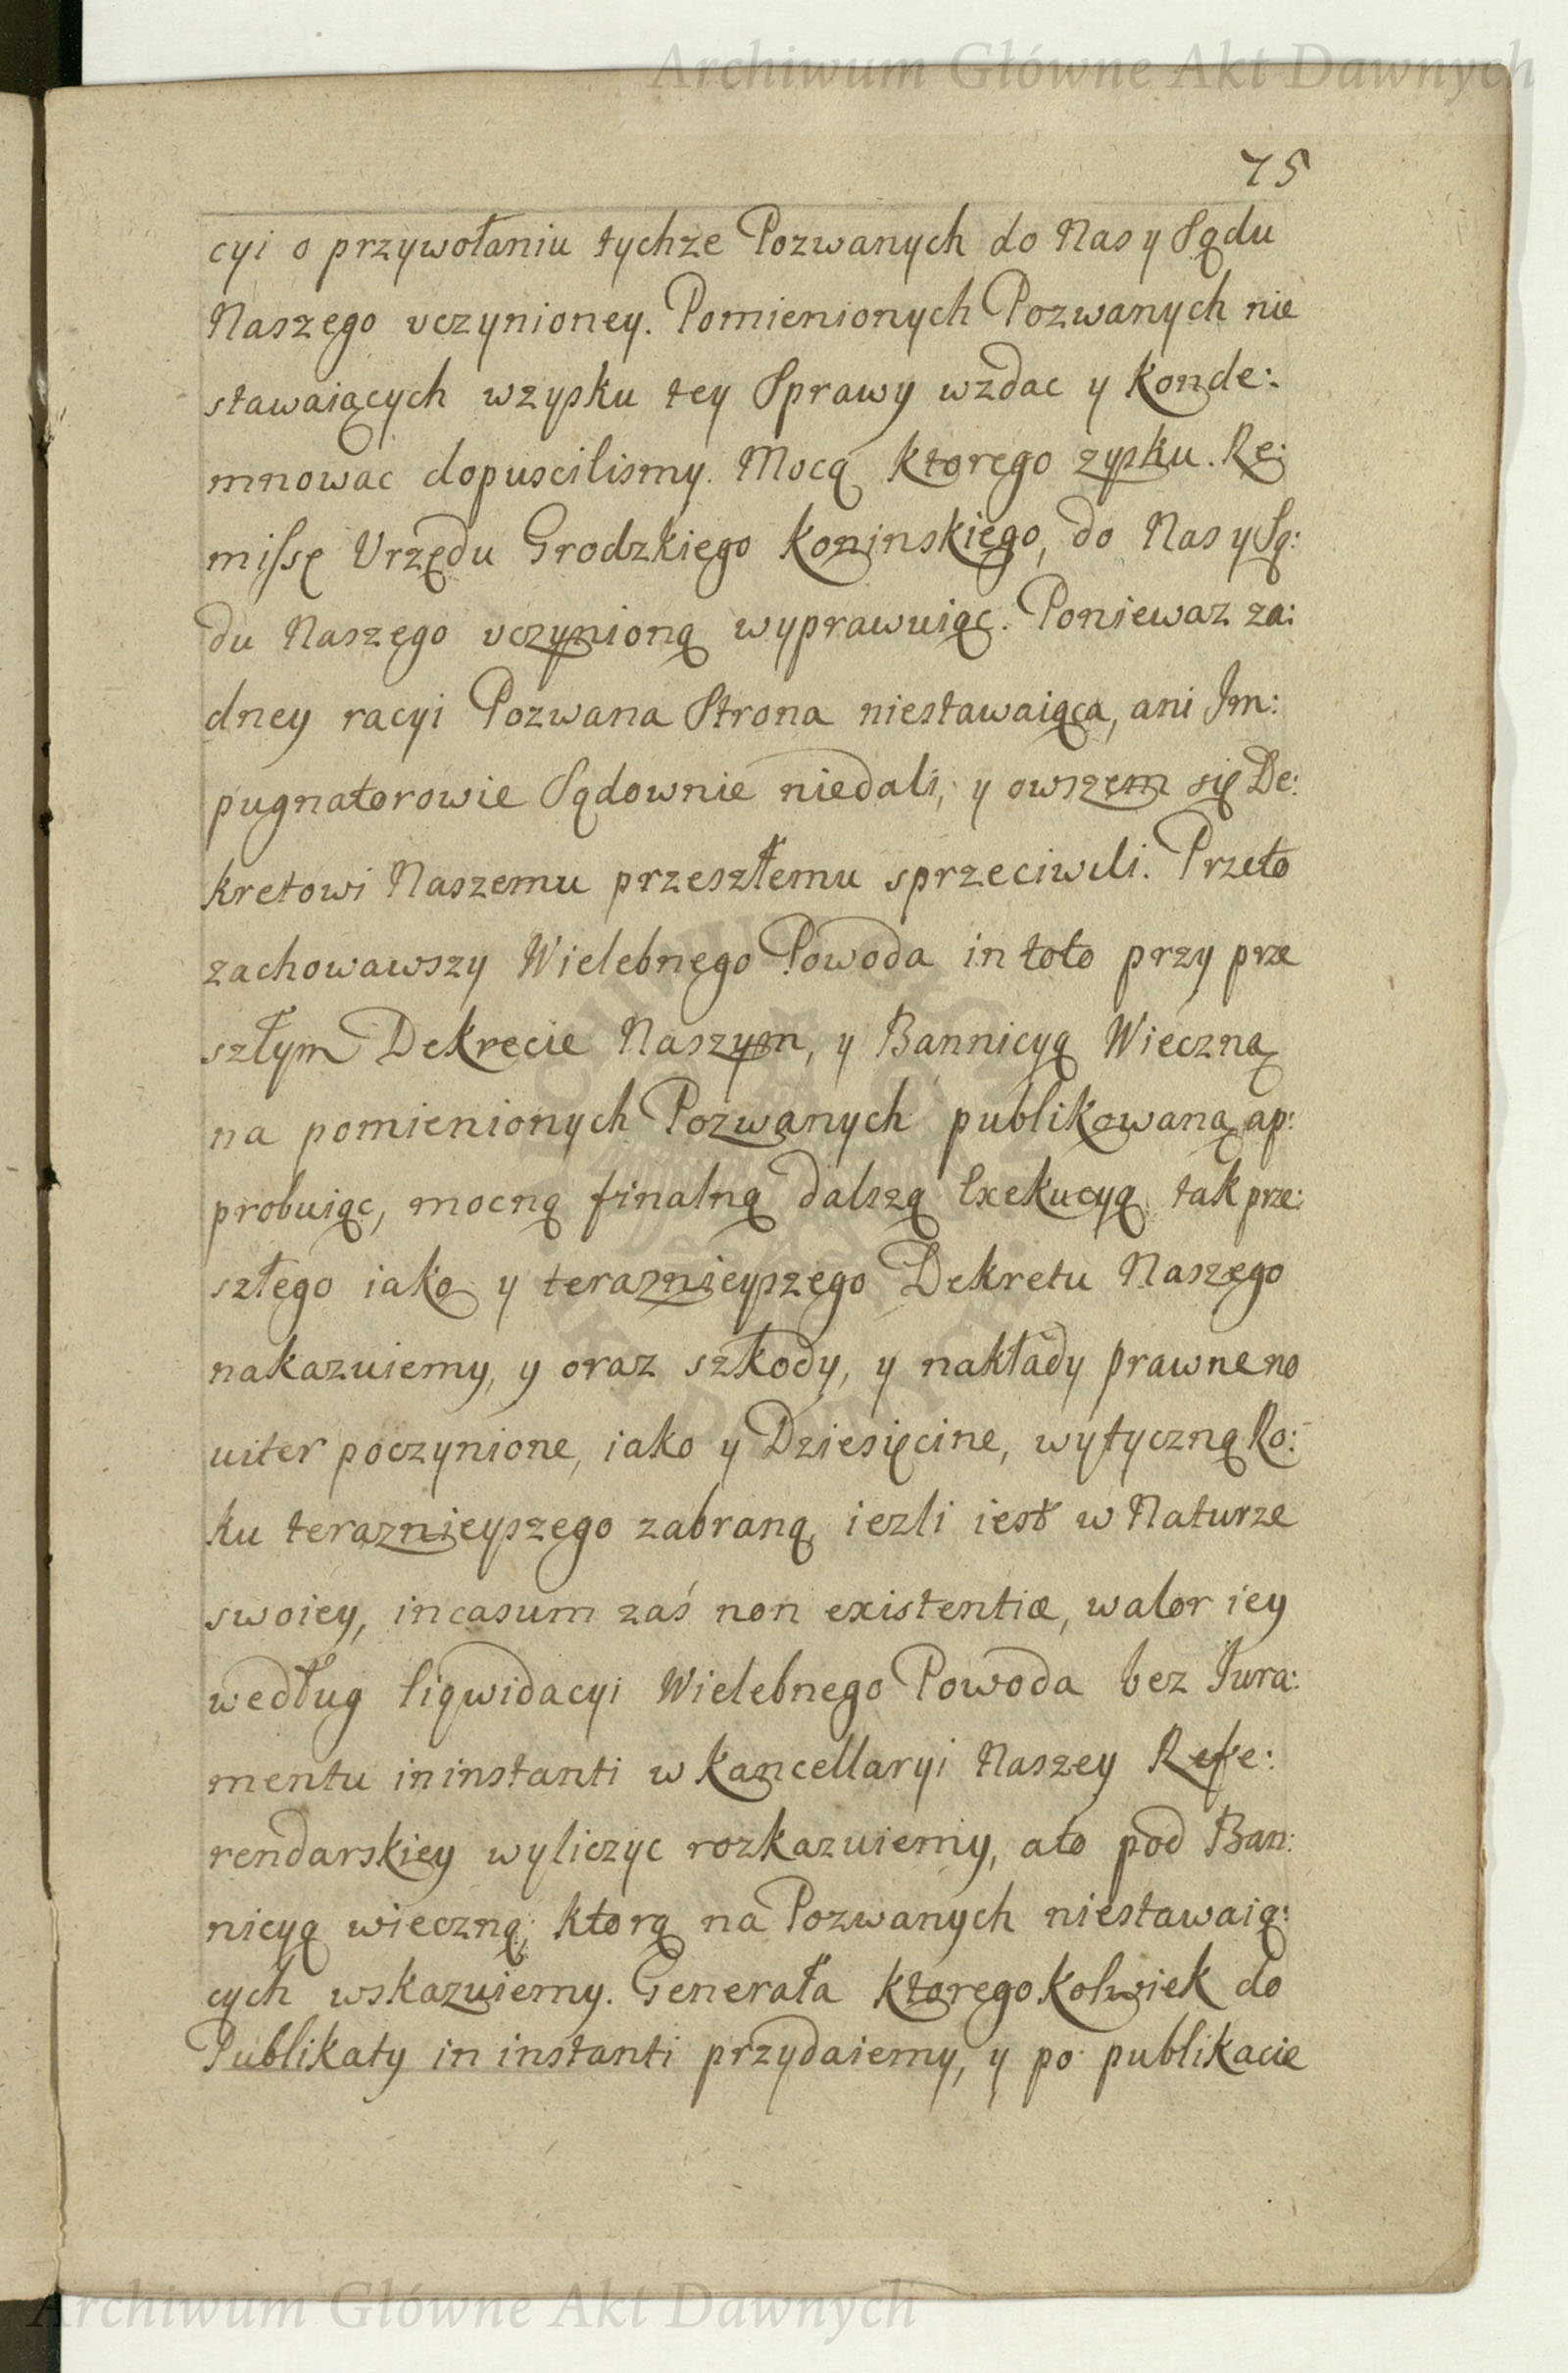 Archiwum Główne Akt Dawnych
75
cyi o przywołaniu tychze Pozwanych do Nas y Sądu
Naszego vczynioney. Pomienionych Pozwanych nie
stawaiących wzysku tey Sprawy wzdac y Konde:
mnowac dopuscilismy. Mocą ktorego zysku. Re:
misse Vrzędu Grodzkiego Koninskiego, do Nas y Są:
du Naszego vczynioną wyprawuiąc. Poniewaz za:
dney racyi Pozwana Strona niestawaiąca, ani Im:
pugnatorowie Sądownie niedali, y owszem się De:
kretowi Naszemu przeszłemu sprzeciwili. Przeto
zachowawszy Wielebnego Powoda in toto przy prze
szłym Dekrecie Naszym, y Bannicyą Wieczną
na pomienionych Pozwanych publikowaną ap:
probuiąc, mocną finalną dalszą Exekucyą tak prze:
szłego iako y teraznieyszego Dekretu Naszego
nakazuiemy, y oraz szkody, y nakłady prawne no
uiter poczynione, iako y Dziesięcine, wytyczną Ro:
ku teraznieyszego zabraną, iezli iest w Naturze
swoiey, incasum zaś non existentiæ, walor iey
według liqwidacyi Wielebnego Powoda bez Jura:
mentu ininstanti w Kancellaryi Naszey Refe:
rendarskiey wyliczyc rozkazuiemy, ato pod Ban:
nicyą wieczną, ktorą na Pozwanych niestawaią:
cych wskazuiemy. Generała ktorego kolwiek do
Publikaty in instanti przydaiemy, y po publikacie
Archiwum Główne Akt Dawnych